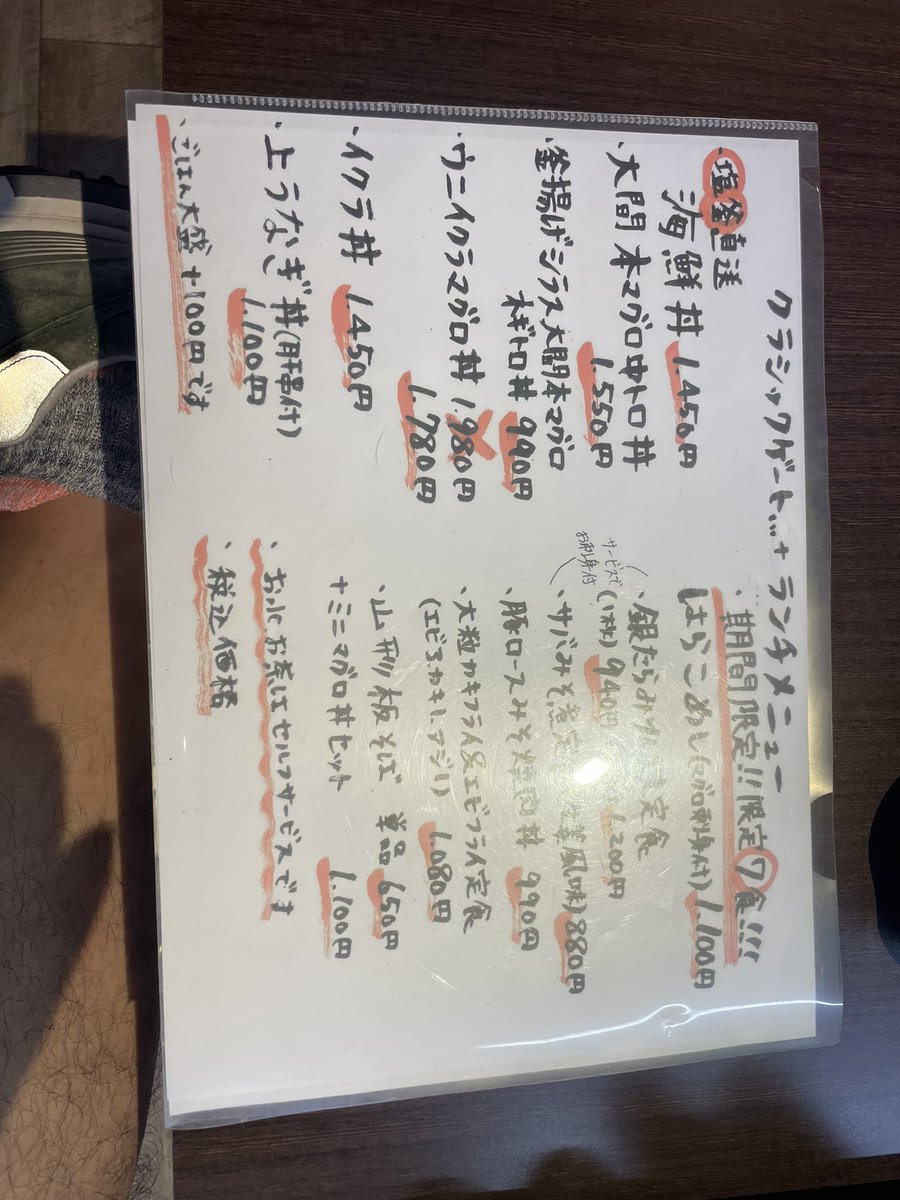 クラシックゲート...+ ランチメニュー
・塩釜直送
海鮮丼 1.450円
・大間本マグロ中トロ丼
1.550円
・釜揚げシラス大間本マグロ
ネギトロ丼 990円
・ウニイクラマグロ丼 1.980円
1.780円
・イクラ丼 1.450円
・上うなぎ丼(肝吸付)
1.100円
・ごはん大盛+100円です
・期間限定!!限定7食!!!
はらこめし(マグロ刺身付)1.100円
・銀たらみ 定食
(1枚)940円 1.200円
サービスで
お刺身付
・サバみそ煮定 生姜風味)880円
・豚ロースみそ焼肉丼 990円
・大粒カキフライ&エビフライ定食
(エビ3.カキ1.アジ1) 1.080円
・山形板そば 単品 650円
+ミニマグロ丼セット
1.100円
・お水お茶はセルフサービスです
・税込価格